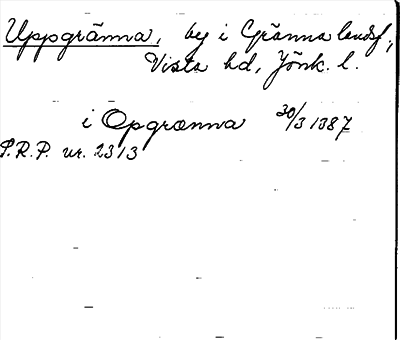 Uppgränna, by i Gränna landsf.,
Vista hd, Jönk. l.
i Opgrænna 30/3 1387
S.R.P. nr. 2313